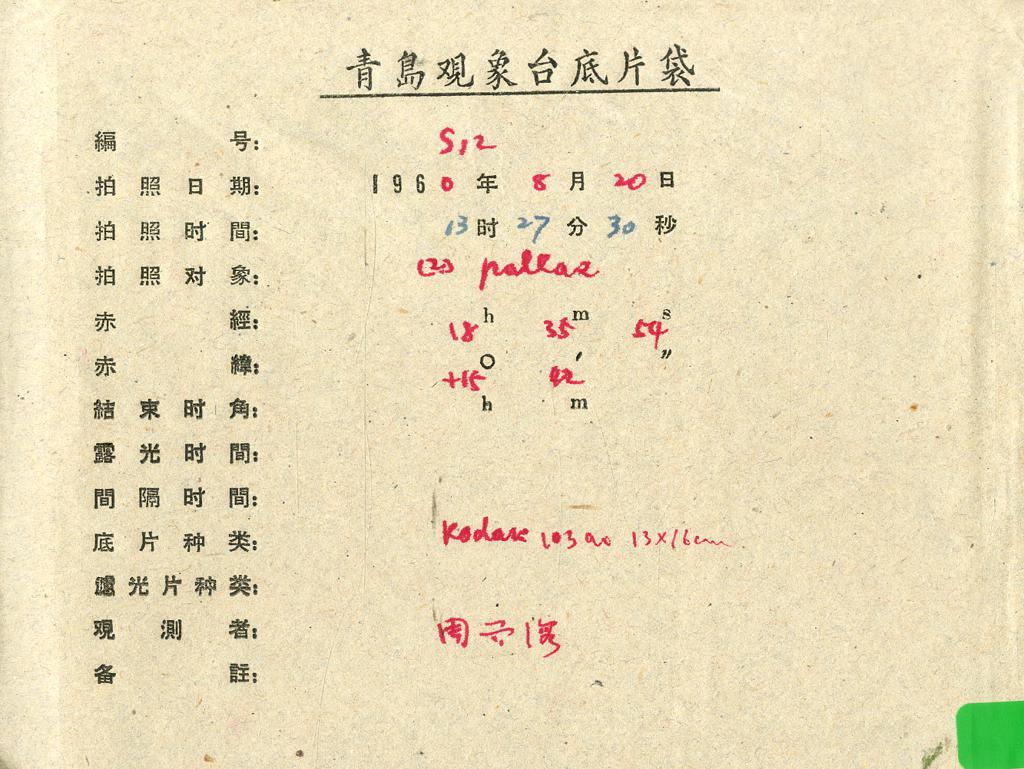 青島观象台底片袋
編号: S12
拍照日期: 1960年 8月 20日
拍照时間: 13时 27分 30秒
拍照对象: (2) pallas
赤經: 18h 35m 54s
赤緯: +15° 42′ ″
結束时角: h m
露光时間:
間隔时間:
底片种类: Kodak 103a0 13×16cm
濾光片种类:
观測者: 周
备註: